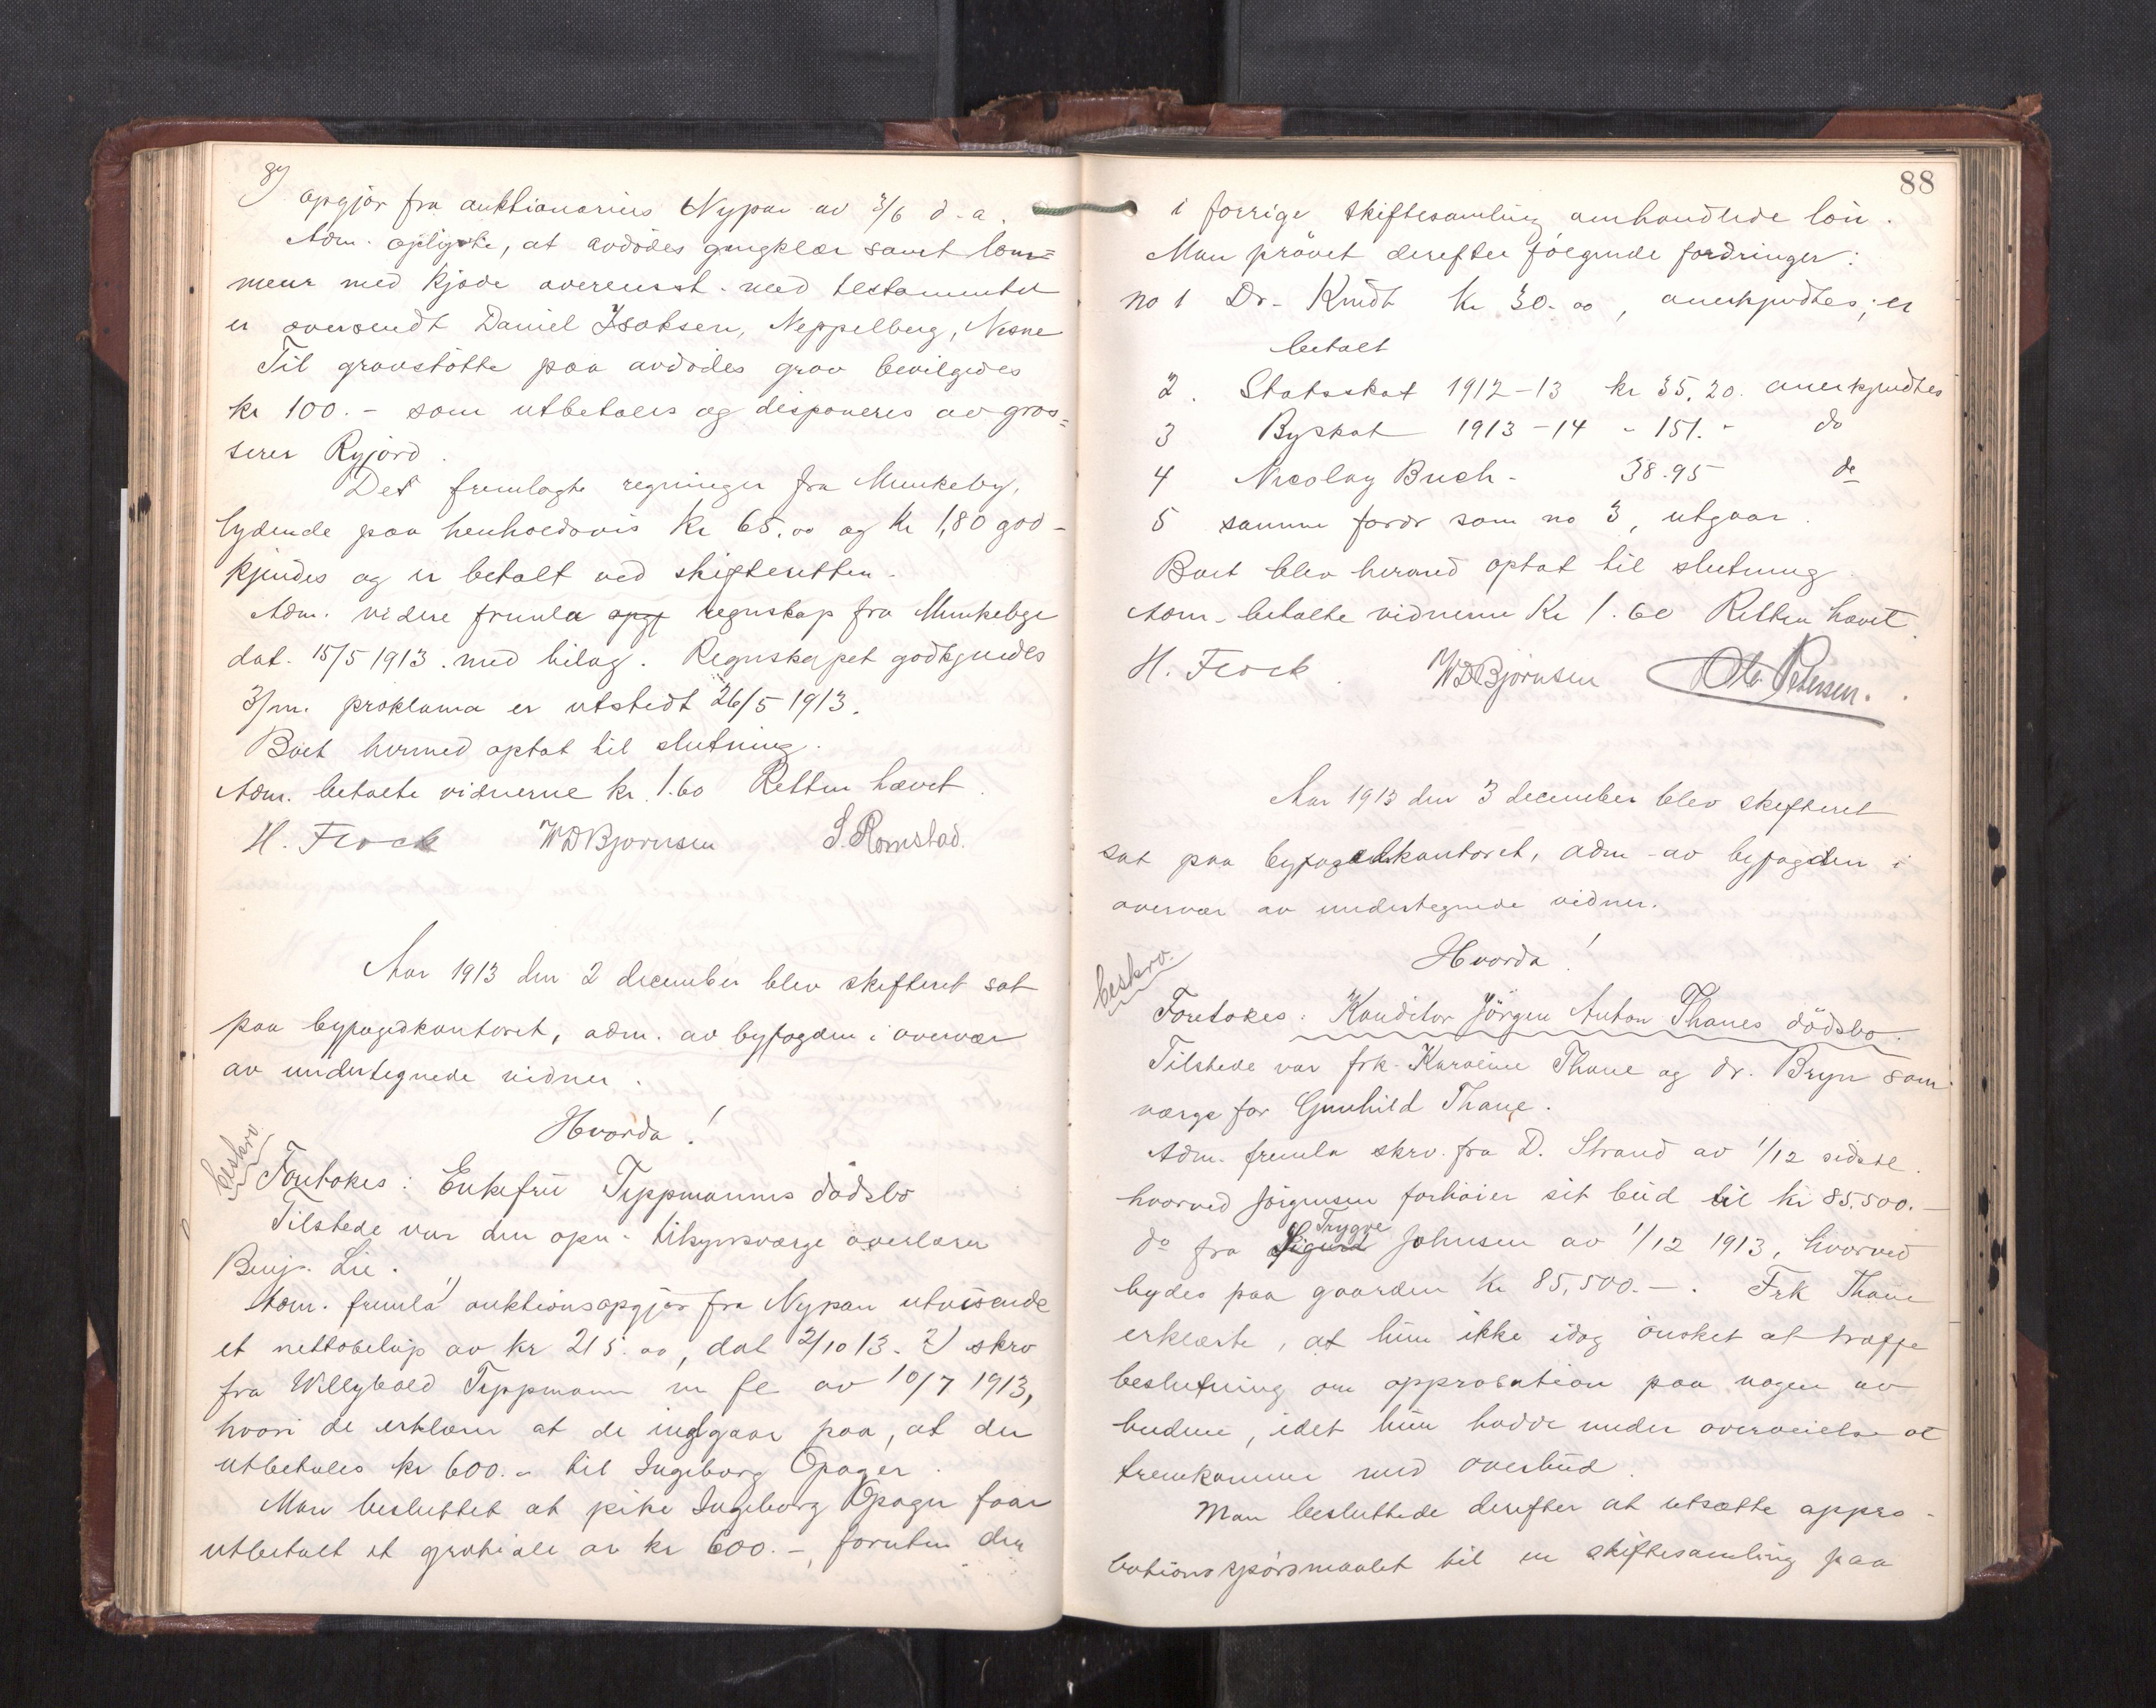 87
opgjør fra auktionarius Nypan av 3/6 d.a.
Adm. oplyste, at avdødes gangklær samt lom=
meur med kjæde overensst. med testamentet
er oversendt Daniel Isaksen, Neppelberg, Nesne
Til gravstøtte paa avdødes grav bevilgedes
kr 100.- som utbetales og disponeres av gros=
serer Ryjord.
Det fremlagte regninger fra Munkeby,
lydende paa henholdsvis kr 65.00 og kr 1,80 god-
kjendes og er betalt ved skifteretten.
Adm. videre fremla opgj regnskap fra Munkeby
dat. 15/5 1913 med bilag. Regnskapet godkjendes
3/m. proklama er utstedt 26/5 1913.
Boet hermed optat til slutning.
Adm. betalte vidnerne kr. 1.60 Retten hævet.
H. Flock WDBjørnsen S. Romstad.
Aar 1913 den 2 december blev skifteret sat
paa byfogedkontoret, adm. av byfogden i overvær
av undertegnede vidner.
Hvorda!
beskrv.
Foretokes: Enkefru Tippmanns dødsbo
Tilstede var den opn. tilsynsværge overlærer
Benj. Lie.
Adm. fremla 1) auktionsopgjør fra Nypan utvisende
et nettobeløp av kr 215.00, dat 2/10 13. 2) skrv
fra Willybald Tippmann m fl av 10/7 1913,
hvori de erklærer at de indgaar paa, at der
utbetales kr 600.- til Ingeborg Opager.
Man besluttet at pike Ingeborg Opager faar
utbetalt et gratiale av kr 600.-, foruten den
88
i forrige skiftesamling omhandlede løn.
Man prøvet derefter følgende fordringer:
no 1 Dr. Kindt kr 30.00, anerkjendtes; er
betalt
2. Statsskat 1912-13 kr 35.20. anerkjendtes
3 Byskat 1913-14 - 151.- do
4 Nicolay Buch - 38.95 do
5 samme fordr som no 3, utgaar.
Boet blev hermed optat til slutning
Adm. betalte vidnerne kr 1.60 Retten hævet.
H. Flock. WDBjørnsen Ole Petersen.
Aar 1913 den 3 december blev skifteret
sat paa byfogedkontoret, adm. av byfogden i
overvær av undertegnede vidner.
Hvorda!
beskrv.
Foretokes: Konditor Jörgen Anton Thanes dödsbo.
Tilstede var frk. Karoline Thane og dr. Bryn som
værge for Gunhild Thane.
Adm. fremla skrv. fra D. Strand av 1/12 sidstl.
hvorved Jörgensen forhöier sit bud til kr 85.500.-
do fra Sigurd Trygve Johnsen av 1/12 1913, hvorved
bydes paa gaarden kr 85,500.-. Frk Thane
erklærte, at hun ikke idag ønsket at træffe
beslutning om approbation paa nogen av
budene, idet hun hadde under overveielse at
fremkomme med overbud.
Man besluttede derefter at utsætte appro-
bationsspörsmaalet til en skiftesamling paa